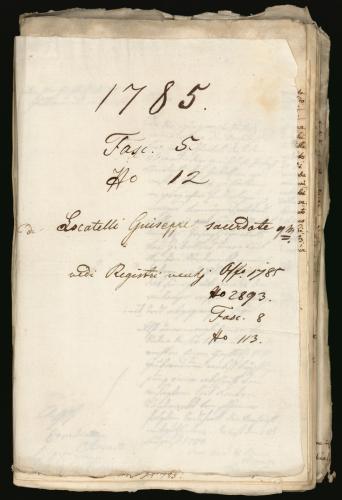 1785.
Fasc. 5.
No 12
de Locatelli Giuseppe sacerdote qm
vedi Registri Off. 1785
No 2893.
Fasc. 8
No 113.